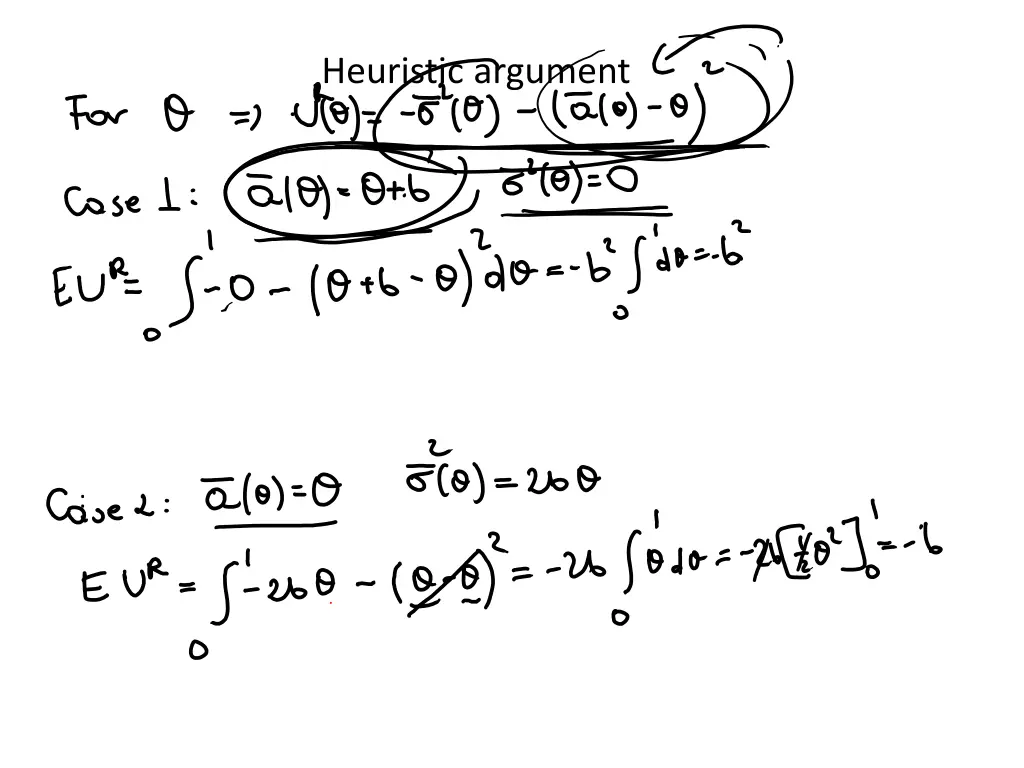 Heuristic argument
For θ ⇒ U^R(θ) = -σ̄²(θ) - (ā(θ) - θ)²
Case 1: ā(θ) = θ+b, σ²(θ) = 0
EU^R = ∫₀¹ -0 - (θ+b-θ)² dθ = -b² ∫₀¹ dθ = -b²
Case 2: ā(θ) = θ σ̄²(θ) = 2bθ
EU^R = ∫₀¹ -2bθ - (θ-θ)² = -2b ∫₀¹ θ dθ = -2b[½θ²]₀¹ = -b